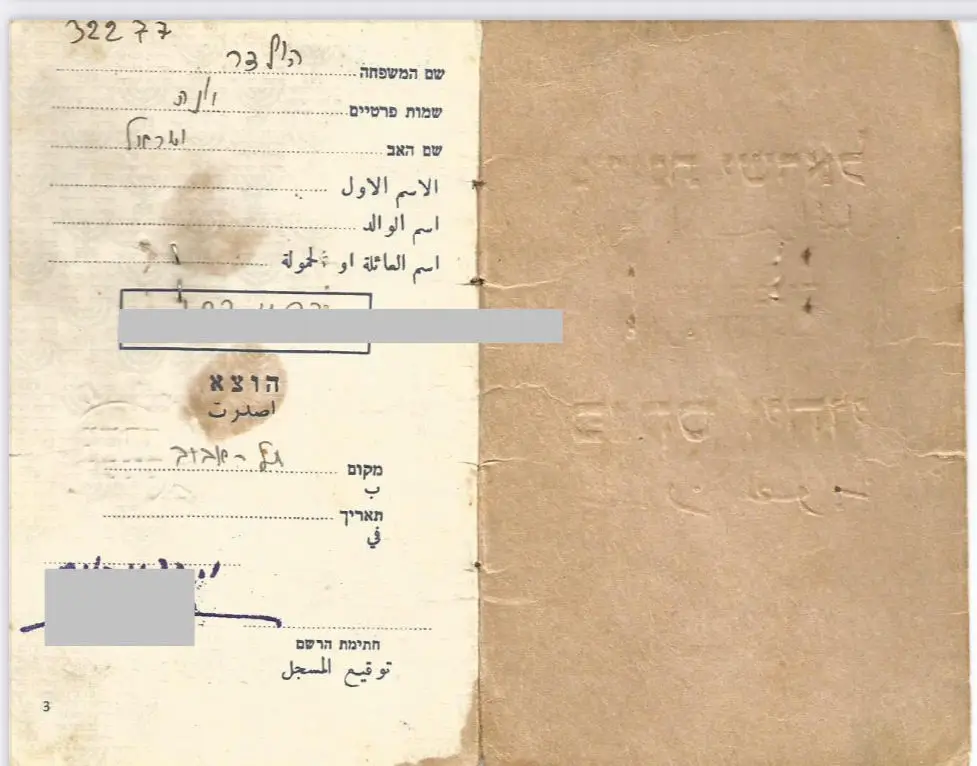 32277
שם המשפחה הולצר
שמות פרטיים
שם האב ישראל
الاسم الاول
اسم الوالد
اسم العائلة او الحمولة
הוצא
اصدرت
מקום תל-אביב
ب
תאריך
في
חתימת הרשם
توقيع المسجل
3